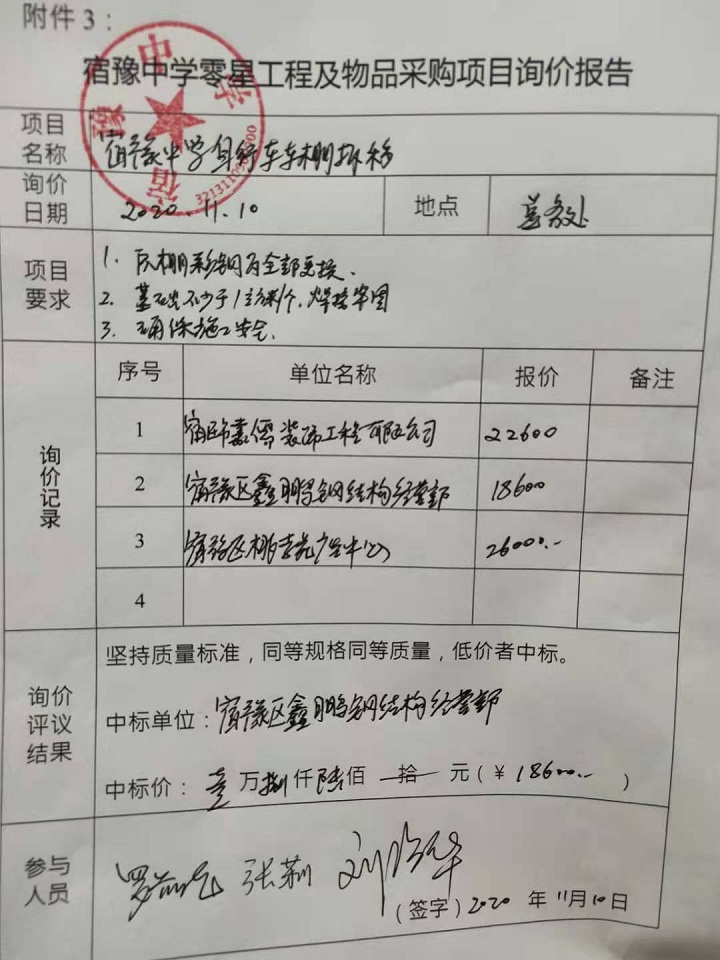 附件3:
宿豫中学零星工程及物品采购项目询价报告
项目名称 宿豫中学自行车车棚拆移
询价日期 2020.11.10 地点 总务处
项目要求
1. 灰棚彩钢瓦全部更换.
2. 基础不少于1立方米/个,焊接牢固
3. 确保施工安全.
询价记录
序号 单位名称 报价 备注
1 宿迁市嘉儒装饰工程有限公司 22600
2 宿豫区鑫鹏钢结构经营部 18600
3 宿豫区 中心 26000.-
4
询价评议结果
坚持质量标准,同等规格同等质量,低价者中标。
中标单位:宿豫区鑫鹏钢结构经营部
中标价: 壹万捌仟陆佰 拾 元(¥18600.-)
参与人员
张莉
(签字)2020年11月10日
宿豫中学